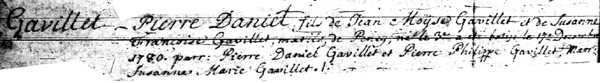 Gavillet – Pierre Daniel, fils de Jean Moÿses Gavillet et de Susanne
Françoise Gavillet, mariés, de Peney, né le 3e a été batisé le 17e Decembre
1780. parr: Pierre Daniel Gavillet et Pierre Philippe Gavillet; Marr:
Susanne Marie Gavillet.